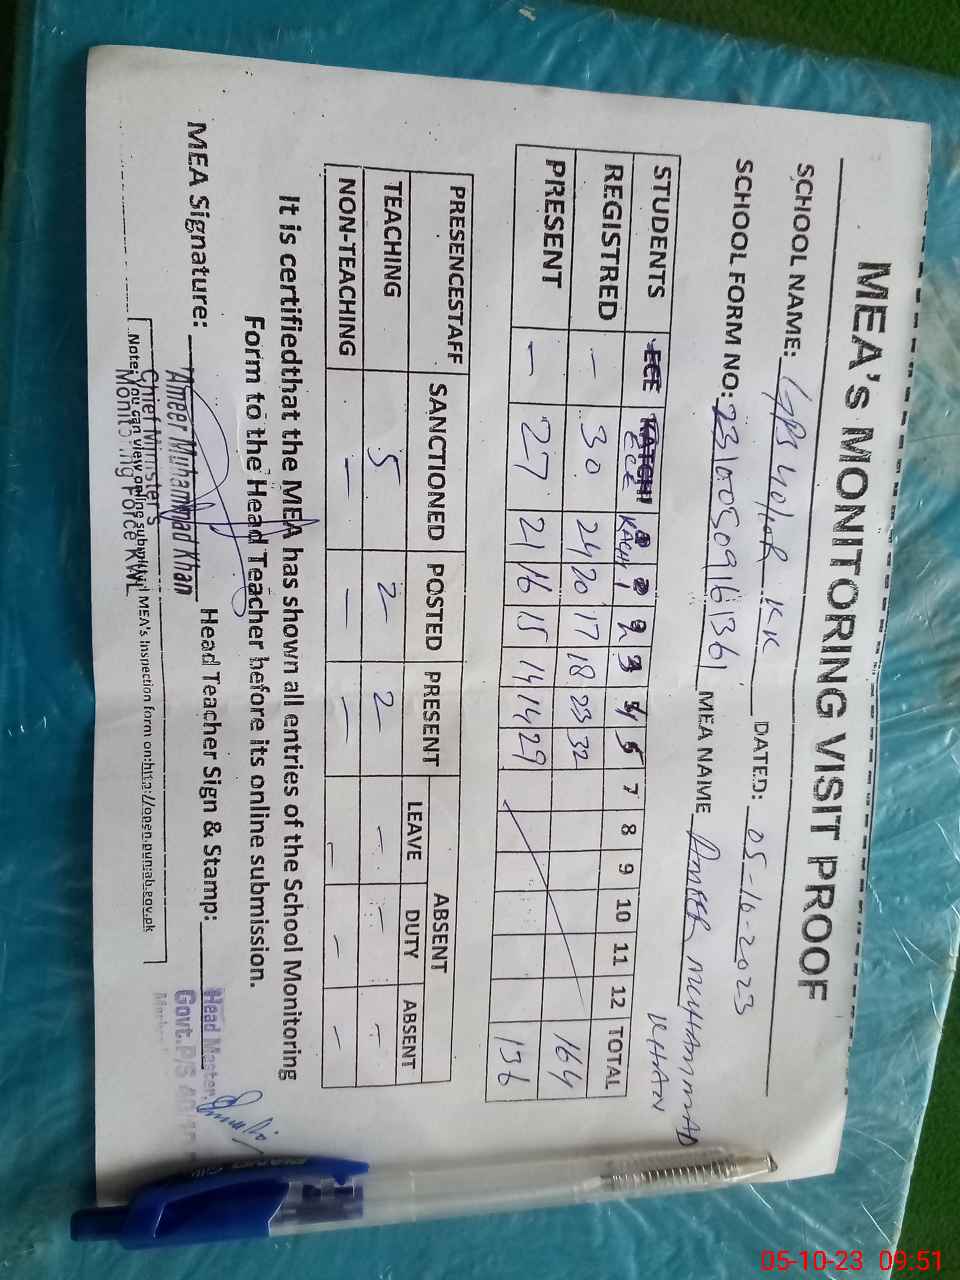 MEA'S MONITORING VISIT PROOF
SCHOOL NAME: GPS 40/10R KK DATED: 05-10-2023
SCHOOL FORM NO: MEA NAME AMEER MUHAMMAD KHAN
STUDENTS ECE KATCHI ECE KACHI 1 2 3 4 5 7 8 9 10 11 12 TOTAL
REGISTRED – 30 24 20 17 18 23 32 164
PRESENT – 27 21 16 15 14 14 29 136
PRESENCESTAFF SANCTIONED POSTED PRESENT ABSENT
LEAVE DUTY ABSENT
TEACHING 5 2 2 – – –
NON-TEACHING – – – – – –
It is certifiedthat the MEA has shown all entries of the School Monitoring
Form to the Head Teacher before its online submission.
MEA Signature: Head Teacher Sign & Stamp:
Ameer Muhammad Khan
Chief Minister's
Monitoring Force KWL
Head Master
Govt.P/S 40/10
Note: You can view online submitted MEA's Inspection form on:http://open.punjab.gov.pk
05-10-23 09:51